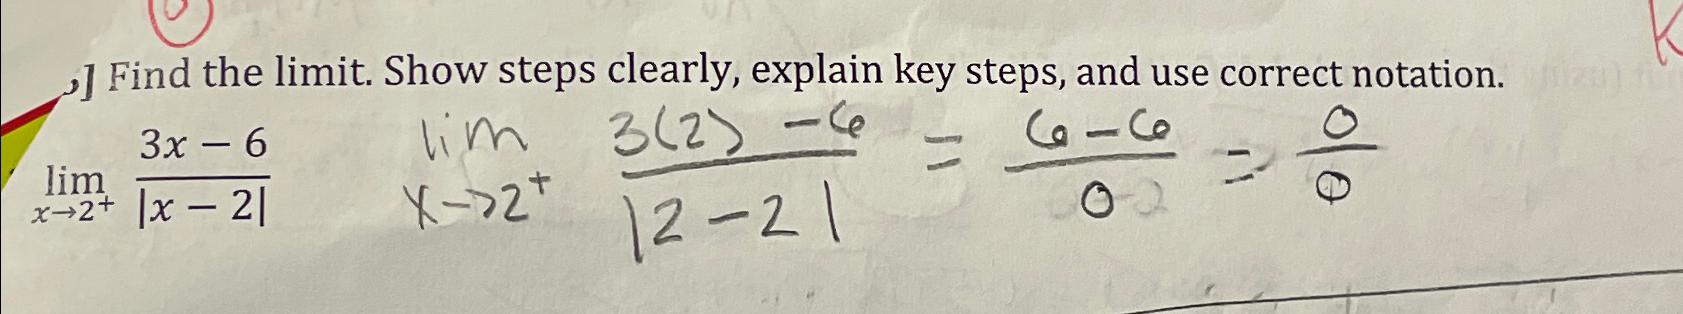 ] Find the limit. Show steps clearly, explain key steps, and use correct notation.
lim x→2⁺ (3x − 6)/|x − 2|
lim x→2⁺ (3(2) − 6)/|2 − 2| = (6 − 6)/0 = 0/0